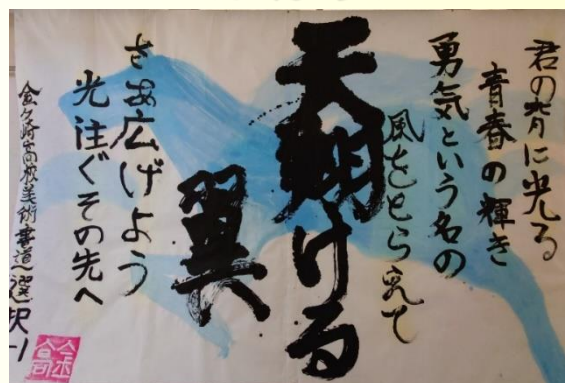 君の背に光る
青春の輝き
勇気という名の
風をとらえて
天翔ける
翼
さあ広げよう
光注ぐその先へ
金ケ崎高校美術書道選択
金高